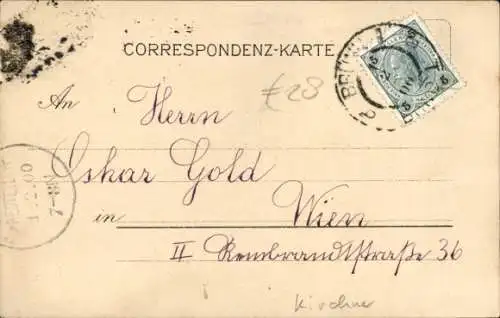 CORRESPONDENZ-KARTE
BRÜNN
5 5
€28
An
Herrn
Oskar Gold
in Wien
II Rembrandtstraße 36
2.00
Kirchner